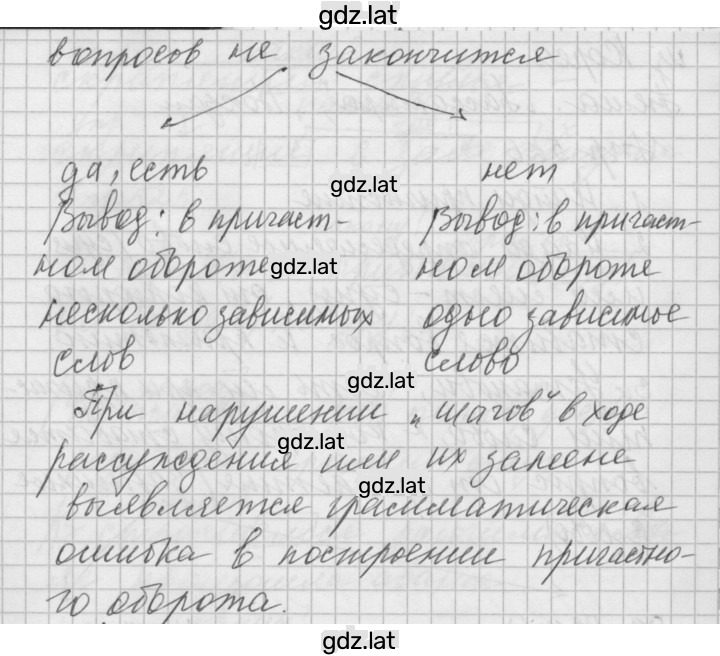 gdz.lat
вопросов не закончится
да, есть нет
gdz.lat
Вывод: в причаст- Вывод: в причаст-
ном обороте ном обороте
gdz.lat
несколько зависимых одно зависимое
слов слово
gdz.lat
При нарушении „шагов“ в ходе
gdz.lat
рассуждения или их замене
gdz.lat
выявляется грамматическая
ошибка в построении причастно-
го оборота.
gdz.lat